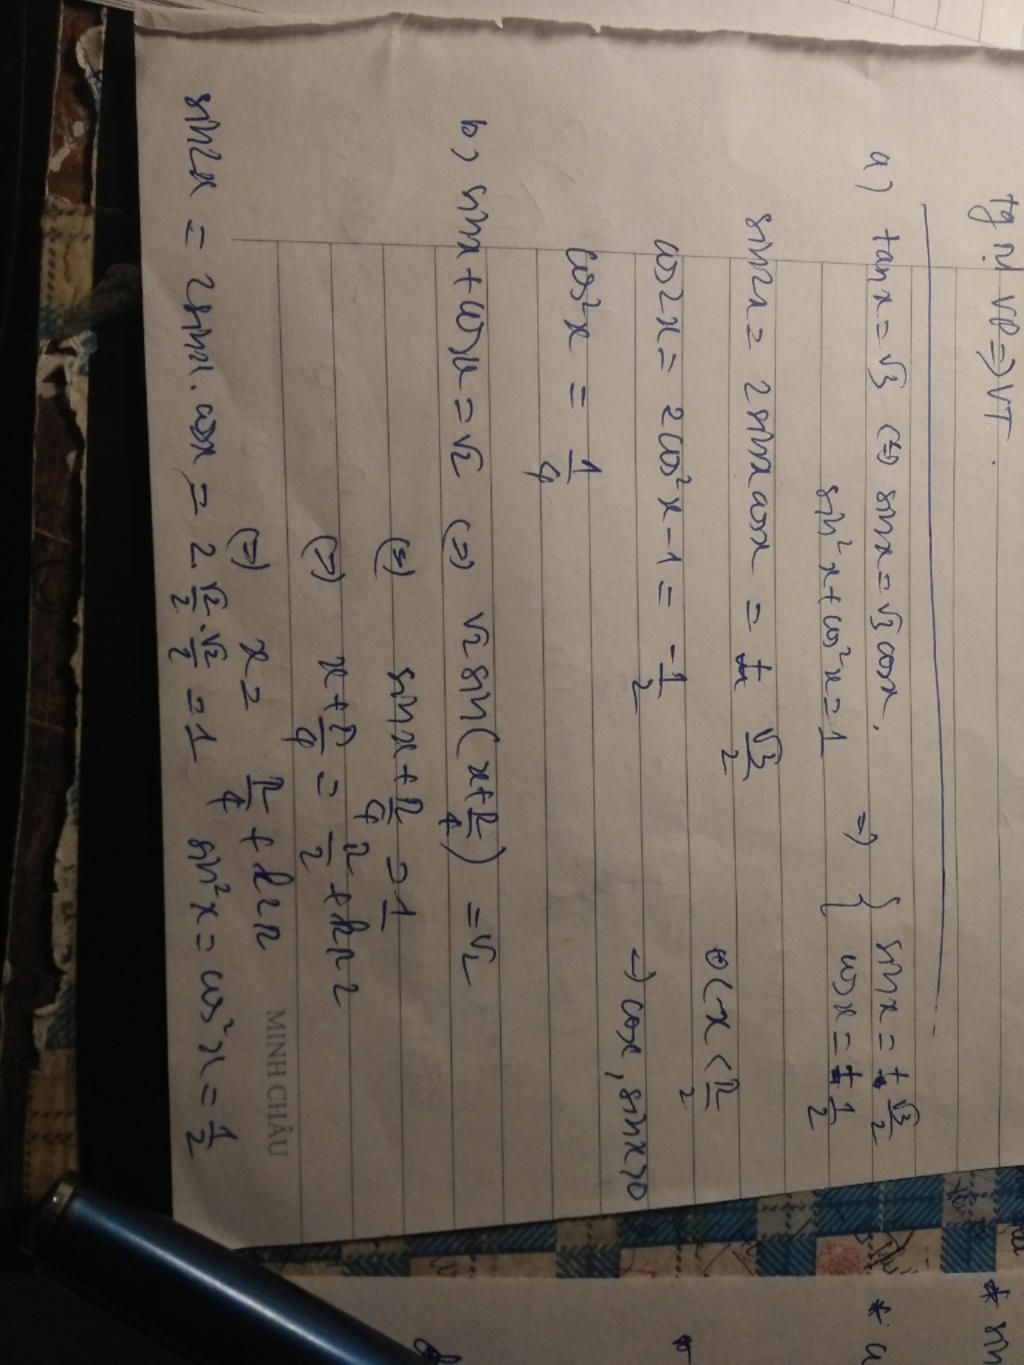 VP => VT.
a) tanx = √3 (=) sinx = √3 cosx,
sin²x + cos²x = 1 => { sinx = ± √3/2
cosx = ± 1/2
sin2x = 2sinxcosx = √3/2
0 < x < π/2
cos2x = 2cos²x - 1 = -1/2
=) cosx, sinx > 0
cos²x = 1/4
b) sinx + cosx = √2 (=) √2 sin(x + π/4) = √2
(=) sinx + π/4 = 1
(=) x + π/4 = π/2 + kπ2
(=) x = π/4 + k2π
MINH CHÂU
sin2x = 2sinx.cosx = 2 √2/2 . √2/2 = 1 sin²x = cos²x = 1/2
* sin
* a